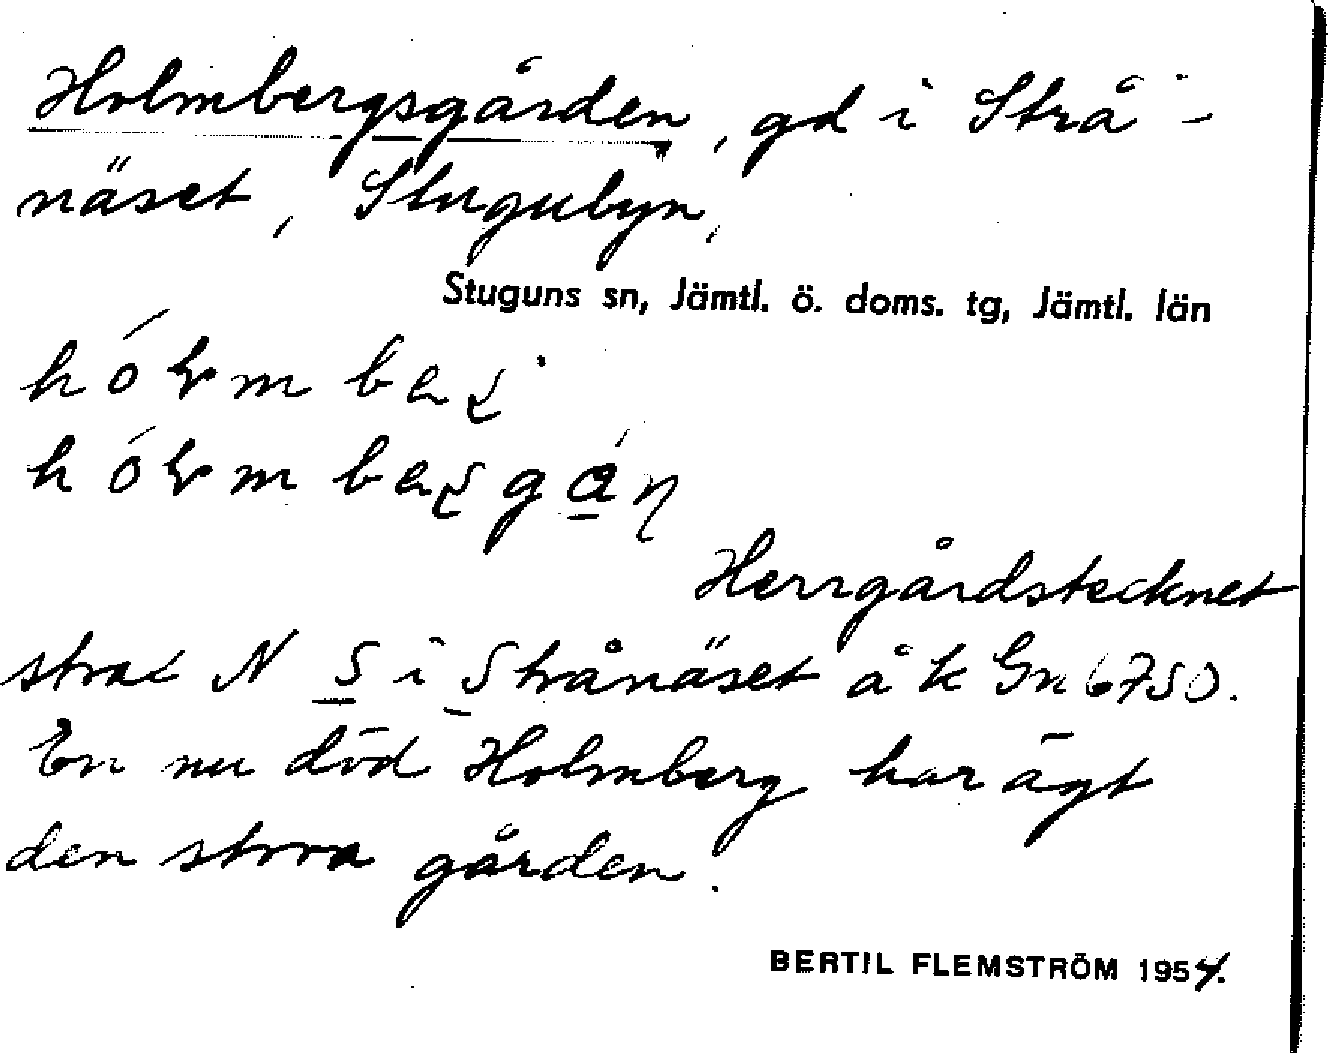 Holmbergsgården, gd i Strå-
näset, Stugubyn,
Stuguns sn, Jämtl. ö. doms. tg, Jämtl. län
Herrgårdstecknet
strax N S i Strånäset å k Gn 6750.
En nu död Holmberg har ägt
den stora gården.
BERTIL FLEMSTRÖM 1954.